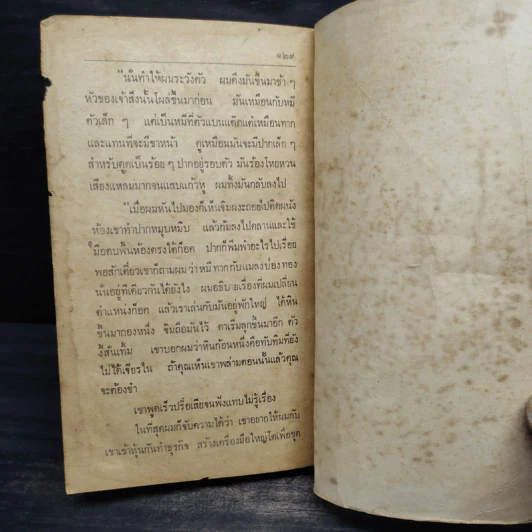 ๑๒๙
"นั่นทำให้ผมระวังตัว ผมดึงมันขึ้นมาช้า ๆ
หัวของเจ้าสิ่งนั้นโผล่ขึ้นมาก่อน มันเหมือนกับหมี
ตัวเล็ก ๆ แต่เป็นหมีที่ตัวแบนแต๊ดแต๋เหมือนทาก
และแทนที่จะมีขาหน้า ดูเหมือนมันจะมีปากเล็ก ๆ
สำหรับดูดเป็นร้อย ๆ ปากอยู่รอบตัว มันร้องโหยหวน
เสียงแหลมมากจนแสบแก้วหู ผมทิ้งมันกลับลงไป
"เมื่อผมหันไปมองก็เห็นจิมผงะถอยไปติดผนัง
ห้องเขาทำปากหมุบหมิบ แล้วก้มลงไปคลานและใช้
มือตบพื้นห้องตรงใต้ก๊อค ปากก็พึมพำอะไรไปเรื่อย
พอสักเดี๋ยวเขาก็ถามผมว่าหมีทากกับแมลงป่องทอง
นั่นอยู่ที่เดียวกันได้ยังไง ผมอธิบายเรื่องที่ผมเปลี่ยน
ตำแหน่งก๊อค แล้วเราเล่นกับมันอยู่พักใหญ่ ได้หิน
ขึ้นมากองหนึ่ง จิมถือมันไว้ ตาเริ่มลุกขึ้นมาอีก ตัว
งี้สั่นเทิ้ม เขาบอกผมว่าหินก้อนหนึ่งคือทับทิมที่ยัง
ไม่ได้เจียรไน ถ้าคุณเห็นเขาพล่ามตอนนั้นแล้วคุณ
จะต้องขำ
เขาพูดเร็วปรื๋อเสียจนฟังแทบไม่รู้เรื่อง
ในที่สุดผมก็จับความได้ว่า เขาอยากให้ผมกับ
เขาเข้าหุ้นกันทำธุรกิจ สร้างเครื่องมือใหญ่โตเพื่อขุด